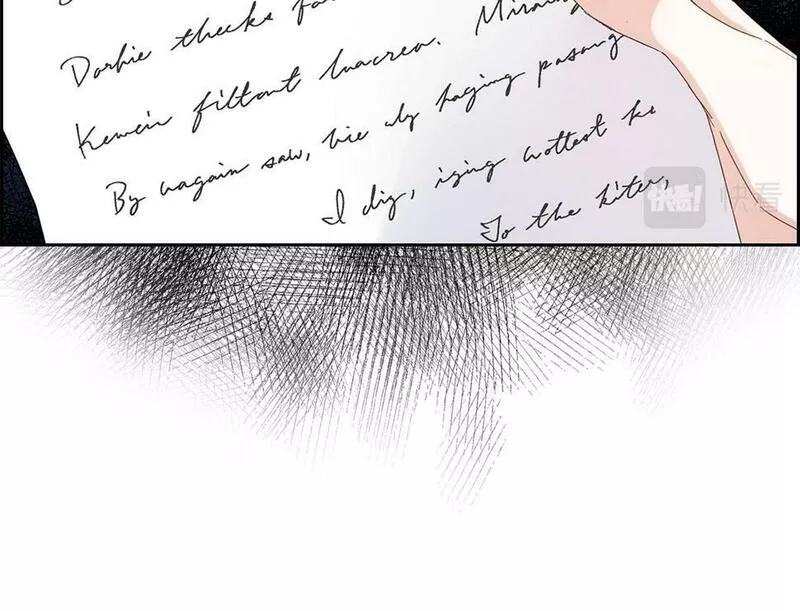 Dorhie thecks fa
Kewein filtont luacrea. Miraing
By wagain saw, hie uly haging pasong
I dig, iging wottest he
To the kiter,
快看! 快看